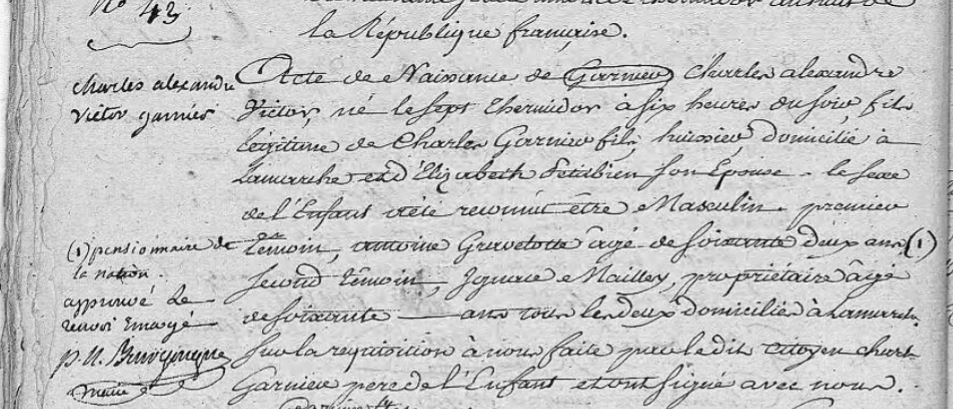 N° 43
la République française.
charles alexandre
victor garnier
Acte de Naissance de Garnier Charles alexandre
Victor, né le sept thermidor à six heures du soir, fils
légitime de Charles Garnier fils, huissier, domicilié à
Lamarche et d'Elizabeth Petitbien son Epouse - le sexe
de l'Enfant a été reconnu être Masculin. premier
témoin, antoine Gravelotte âgé de soixante deux ans (1)
second témoin, Ignace Mailley, propriétaire âgé
de soixante ans tous les deux domiciliés à Lamarche.
Sur la requisition à nous faite par le dit citoyen Charl
Garnier pere de l'Enfant et ont signé avec nous.
(1) pensionnaire de
la nation.
approuvé le
renvoi
maire